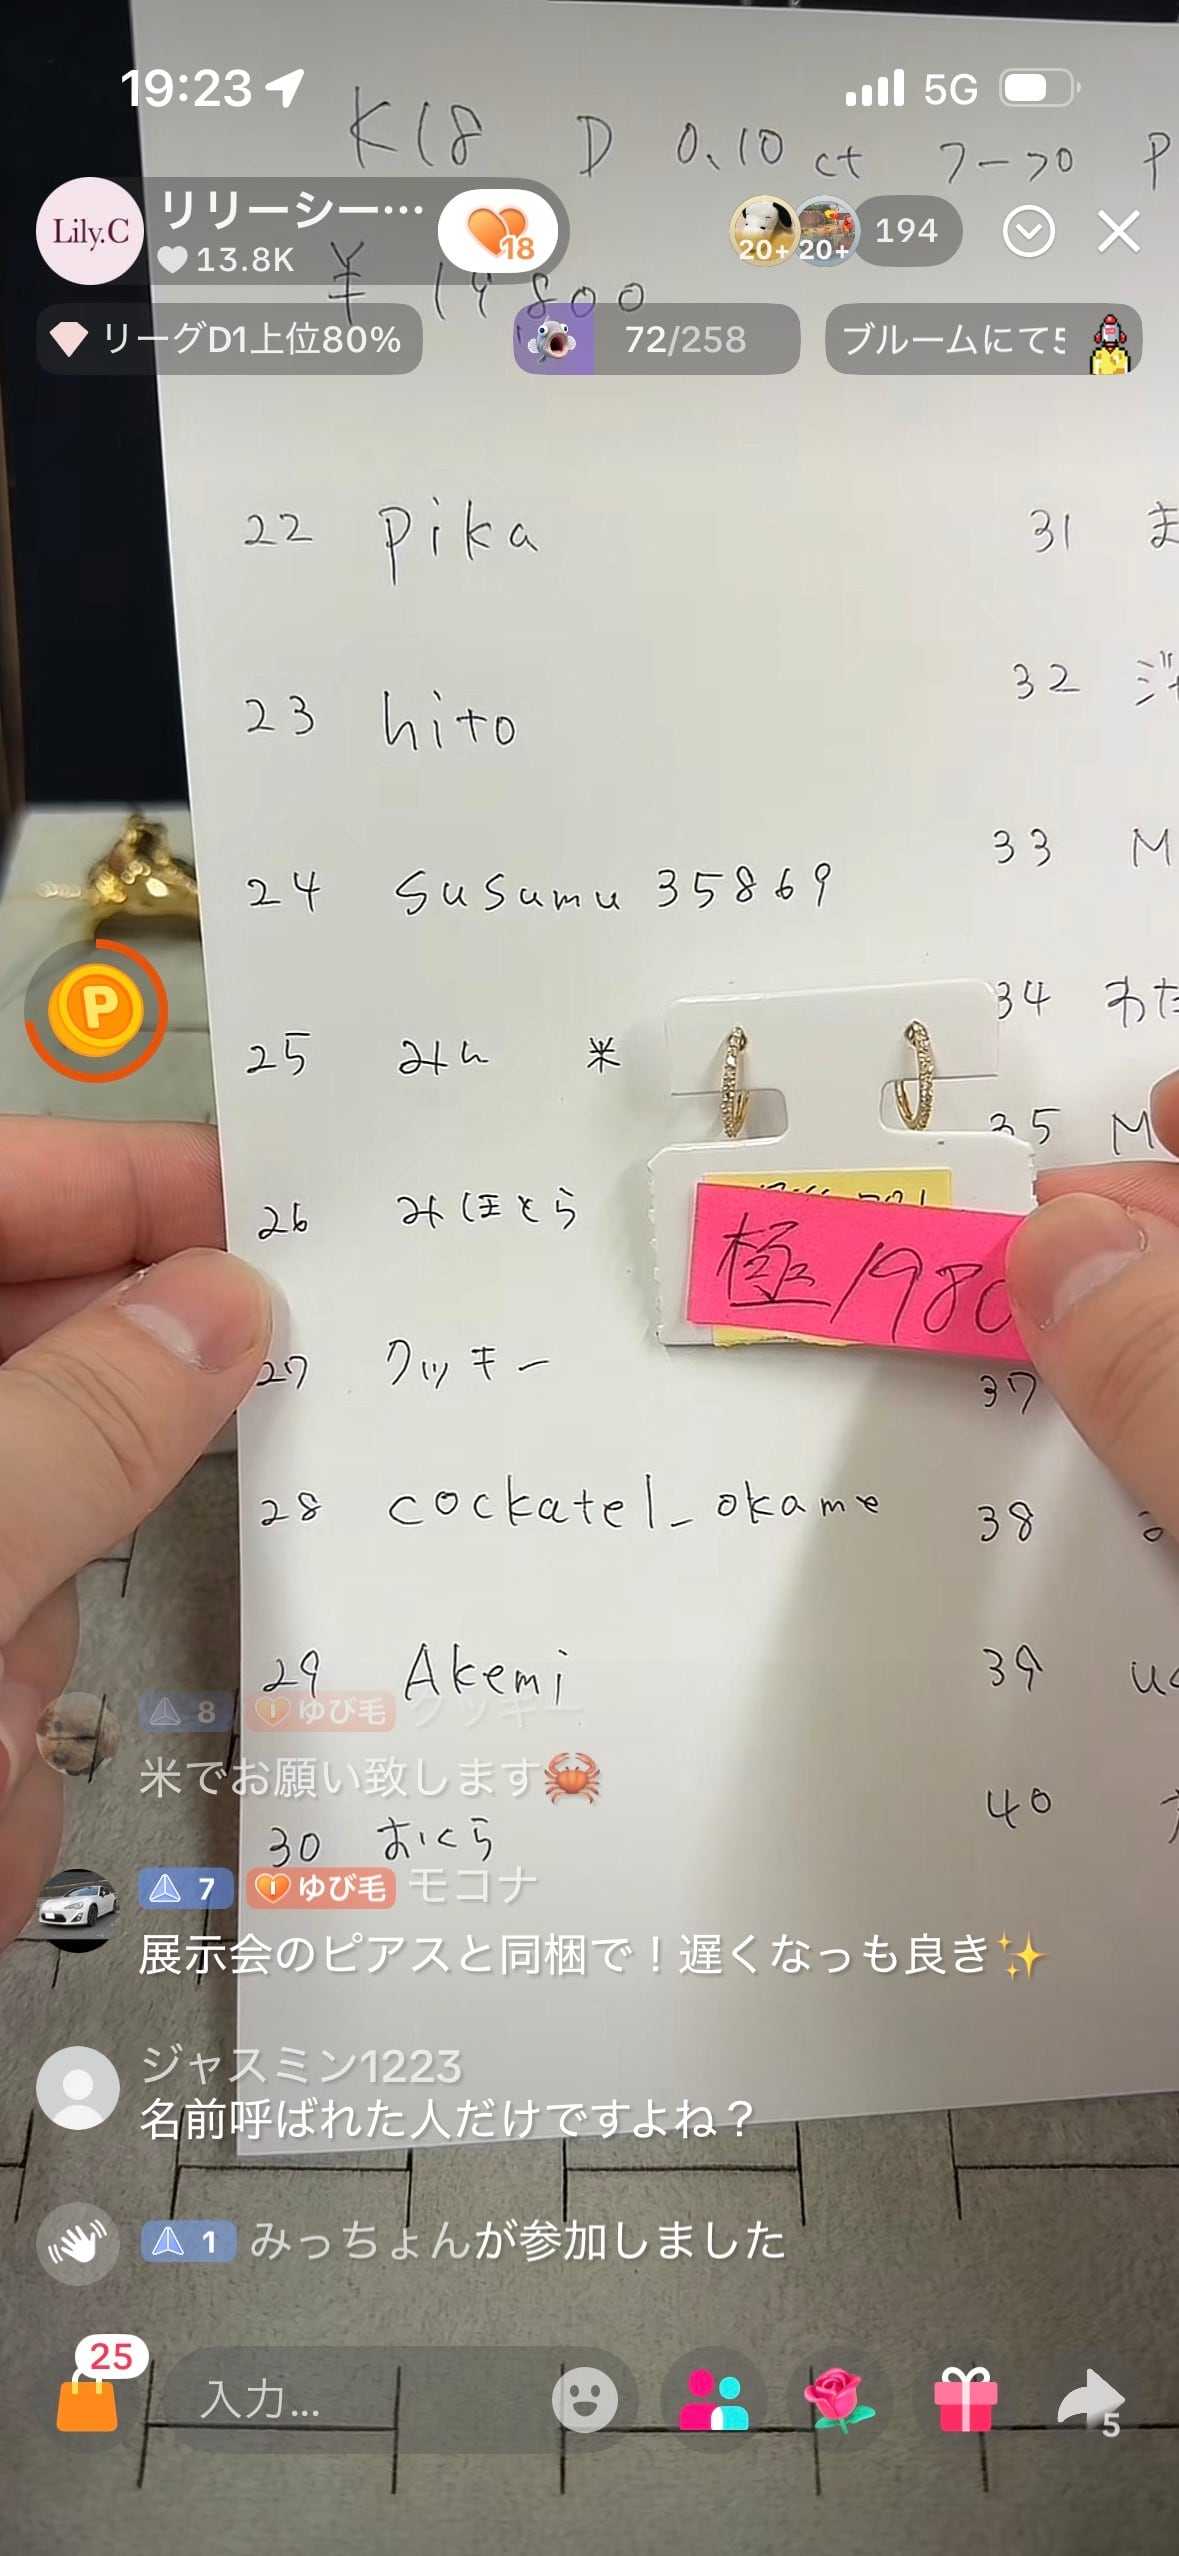 19:23 5G
K18 D 0.10 ct フープ P
Lily.C リリーシー… 18 20+ 20+ 194
13.8K
¥ 19800
リーグD1上位80% 72/258 ブルームにて5
22 pika 31 ま
23 hito 32 ジャ
24 susamu 35869 33 M
P
25 みん 米 34 わた
35 M
26 みほとら
極 1980
27 クッキー 37
28 cockatel_okame 38
29 Akemi 39
8 ゆび毛 クッキー
米でお願い致します🦀
30 おくら 40
7 ゆび毛 モコナ
展示会のピアスと同梱で！遅くなっも良き✨
ジャスミン1223
名前呼ばれた人だけですよね？
1 みっちょんが参加しました
25 入力... 5